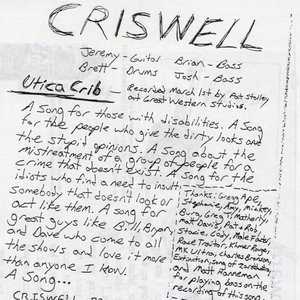 CRISWELL
Jeremy - Guitol Brian - Bass
Brett - Drums Josh - Bass
Utica Crib - Recorded March 1st by Pat Stolley
at Great Western Studios.
A song for those with disabilities. A song
for the people who give the dirty looks and
the stupid opinions. A song about the
mistreatment of a group of people for a
crime that doesn't exist. A song for the
idiots who find a need to insult
somebody that doesn't look or
act like them. A song for
great guys like Bill, Bryan,
and Dave who come to all
the shows and love it more
than anyone I know.
A Song...
CRISWELL
Thanks: Gregg, MPE,
Stephanie, Mickey,
Bung, Greg, Tim Matherly,
Matt Davis, Pat + Rob,
Stacie, Cody, Male Factor,
Race Traitor,
MK Ultra, Charles Bronson,
Extinction,
and Matt Hanneman
for playing bass on the
recording of this song.